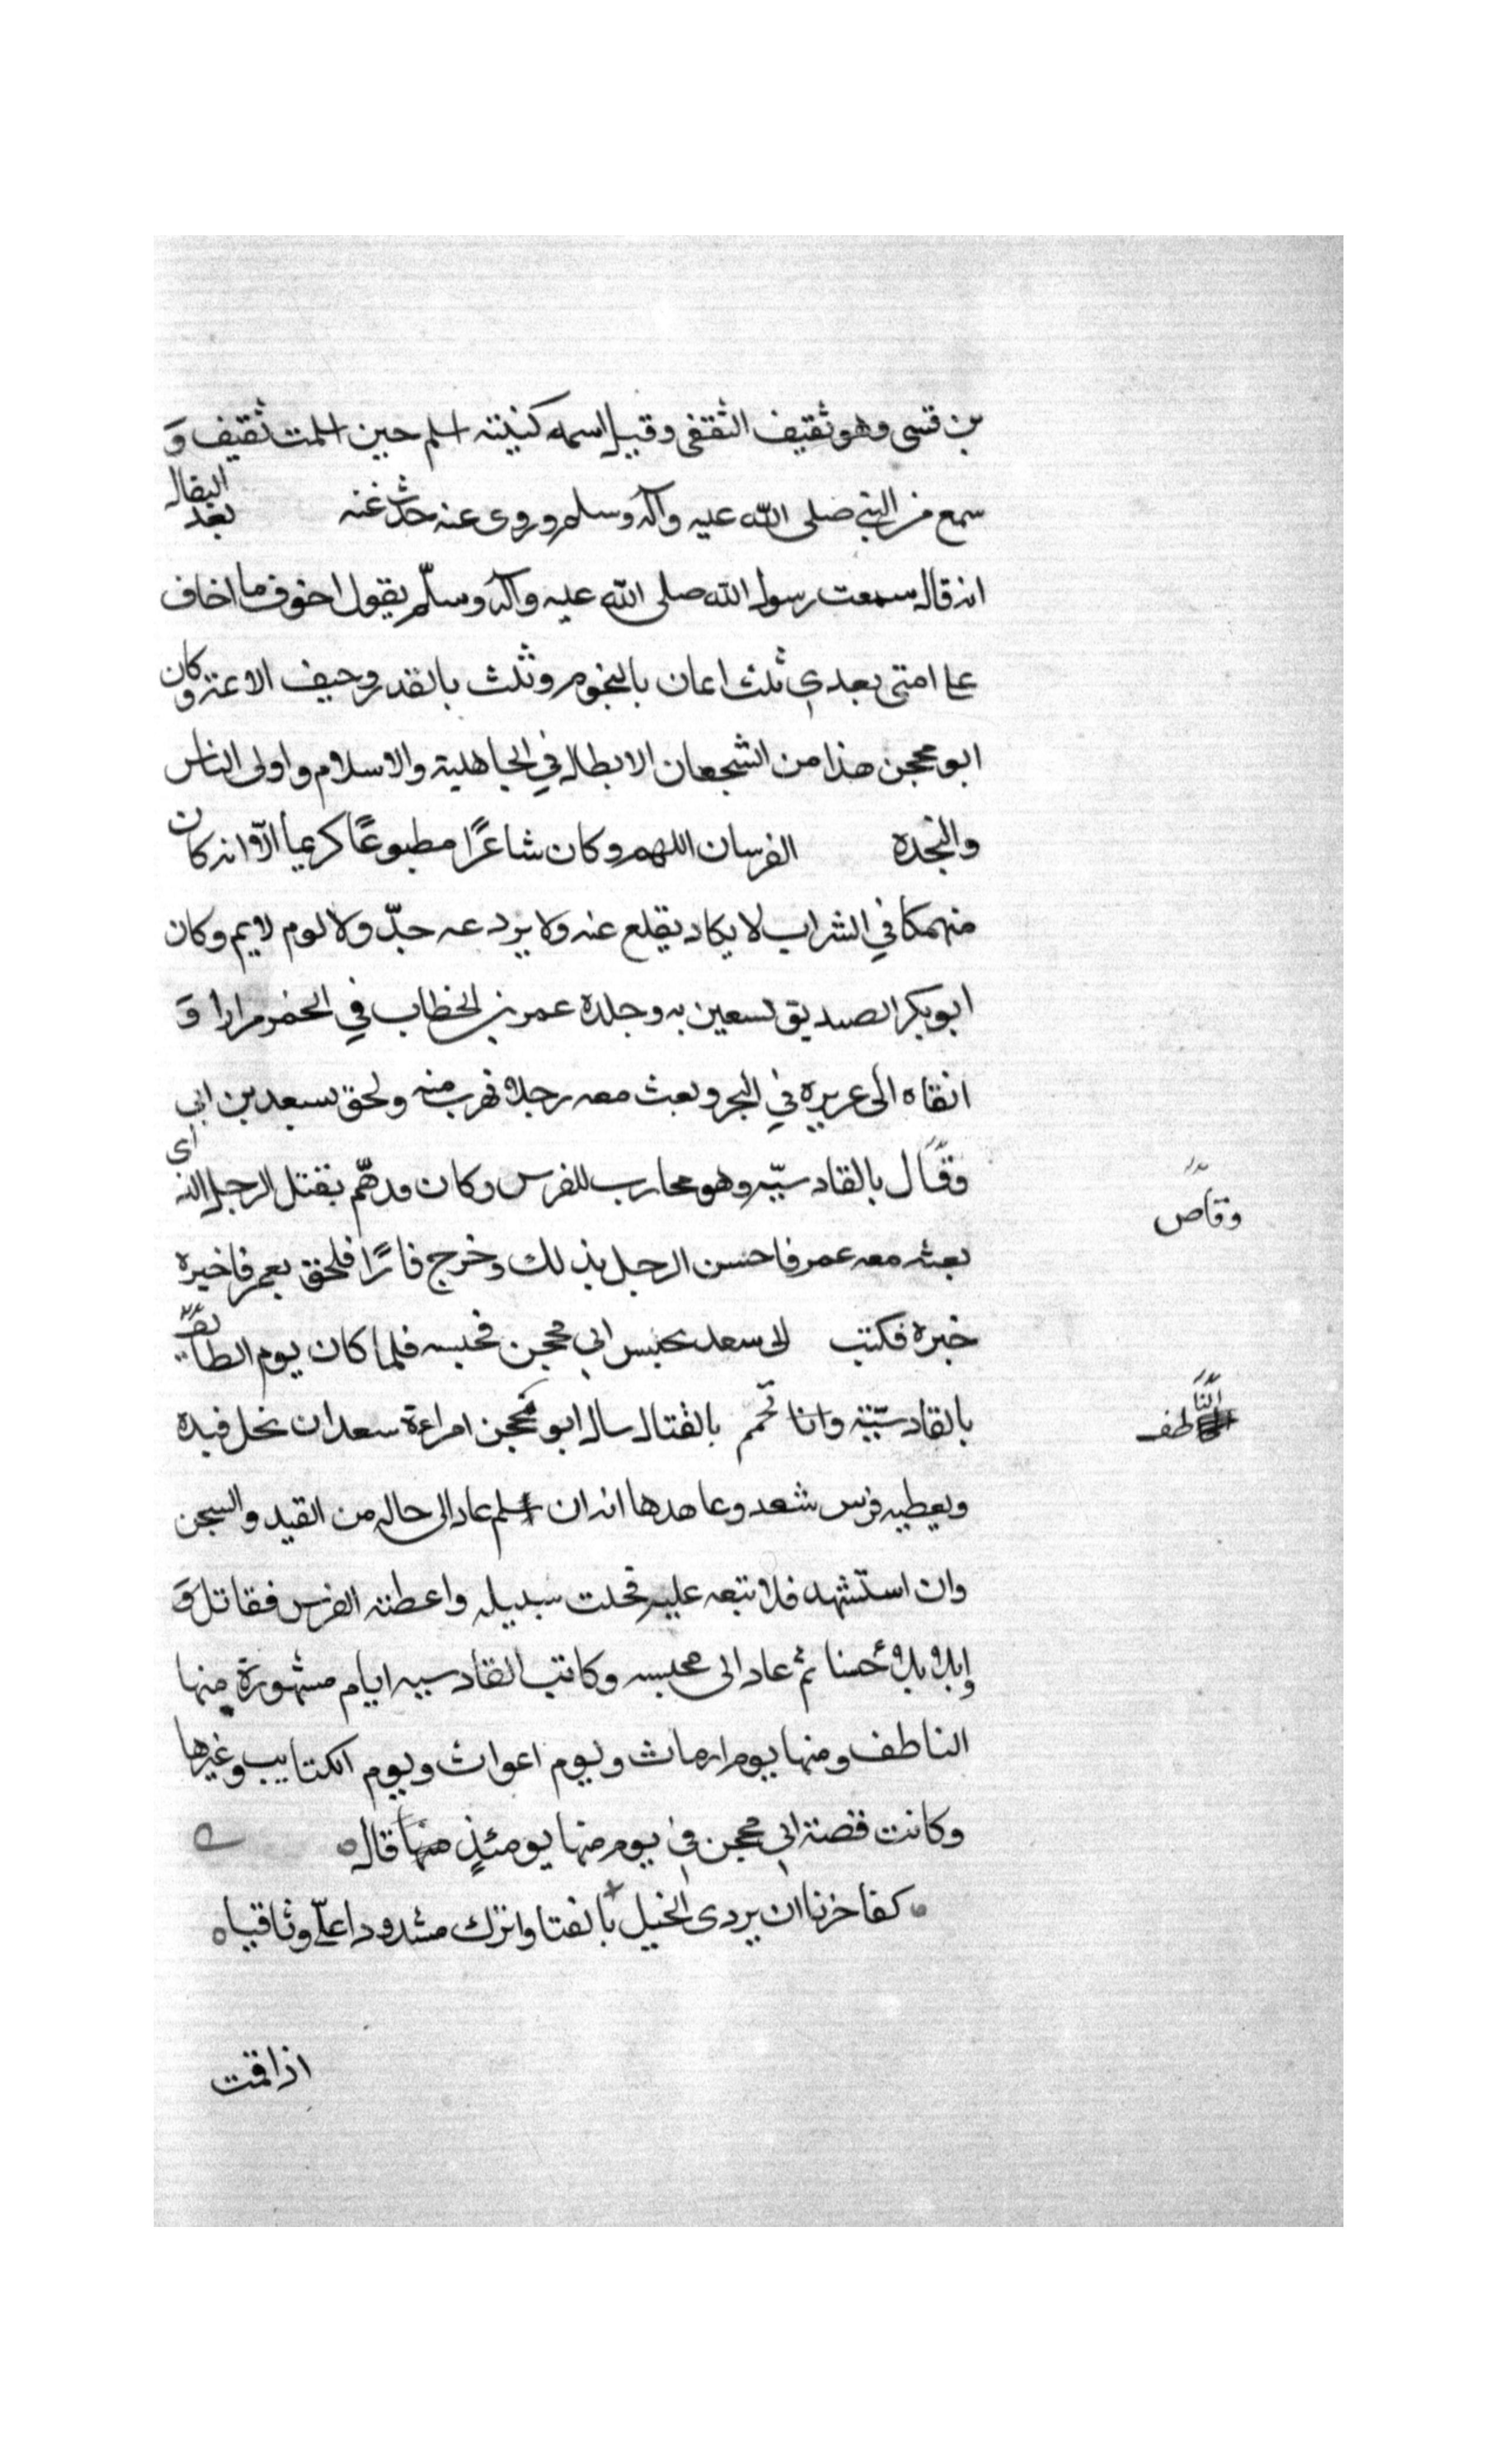 بن قسى وهو ثقيف الثقفى وقيل اسمه كنيته اسلم حين اسلمت ثقيف و
سمع من النبي صلى الله عليه وآله وسلم وروى عنه حدث عنه البقال بعد
انه قال سمعت رسول الله صلى الله عليه وآله وسلّم يقول اخوف ما اخاف
على امتى بعدى ثلث اعان بالنجوم وثلث بالقدر وحيف الاعتر وكان
ابو محجن هذا من الشجعان الابطال في الجاهلية والاسلام واولى الناس
والنجدة الفرسان اللهم وكان شاعرًا مطبوعًا كريما الّا انه كان
منهمكا في الشراب لا يكاد يقلع عنه ولا يردعه حدّ ولا لوم لايم وكان
ابو بكر الصديق تسعين به وجلدة عمر بن الخطاب في الخمر مرارا و
انفاه الى عريرة في البحر وبعث معه رجلا فهرب منه ولحق بسعد بن ابي
وقال بالقادسيّه وهو محارب للفرس وكان قد همّ بقتل الرجل الذى
بعثه معه عمر فاحسن الرجل بذلك وخرج فارًا فلحق بعمر فاخبره
خبرة فكتب الى سعد بحبس ابي محجن فحبسه فلما كان يوم الطايف
بالقادسيّة وانا تحمم بالقتال سال ابو محجن امراءة سعد ان تحل قيده
ويعطيه فرس سعد وعاهدها انه ان اسلم عاد الى حاله من القيد والسجن
وان استشهد فلا تبعه عليه فحلت سبيله واعطته الفرس فقاتل و
وابلا بلاءً حسنا ثم عاد الى محبسه وكانت القادسيه ايام مشهورة منها
الناطف ومنها يوم ارماث ويوم اعواث ويوم الكتايب وغيرها
وكانت قصة ابي محجن في يوم منها يومئذٍ منها قال
كفا حزنا ان يردى الخيل بالفتا واترك مشدودا علىّ وثاقيا
اذا قمت
وقاص
النا طف